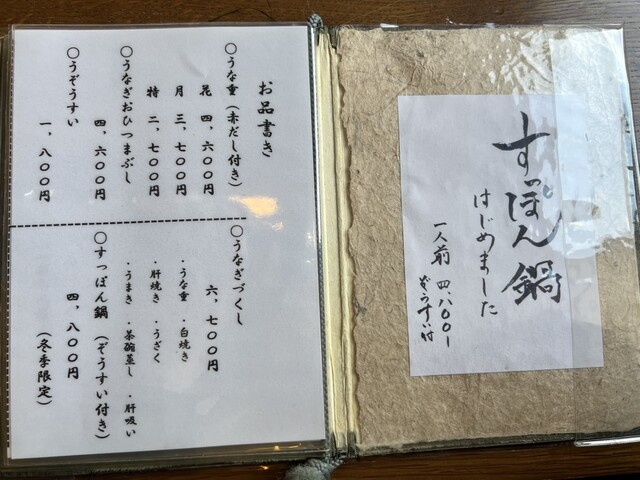 すっぽん鍋
はじめました
一人前 四、八〇〇ー
ぞうすい付
お品書き
〇うな重（赤だし付き）
花 四、六〇〇円
月 三、七〇〇円
特 二、七〇〇円
〇うなぎおひつまぶし
四、六〇〇円
〇うぞうすい
一、八〇〇円
〇うなぎづくし
六、七〇〇円
・うな重 ・白焼き
・肝焼き ・うざく
・うまき ・茶碗蒸し ・肝吸い
〇すっぽん鍋（ぞうすい付き）
四、八〇〇円
（冬季限定）